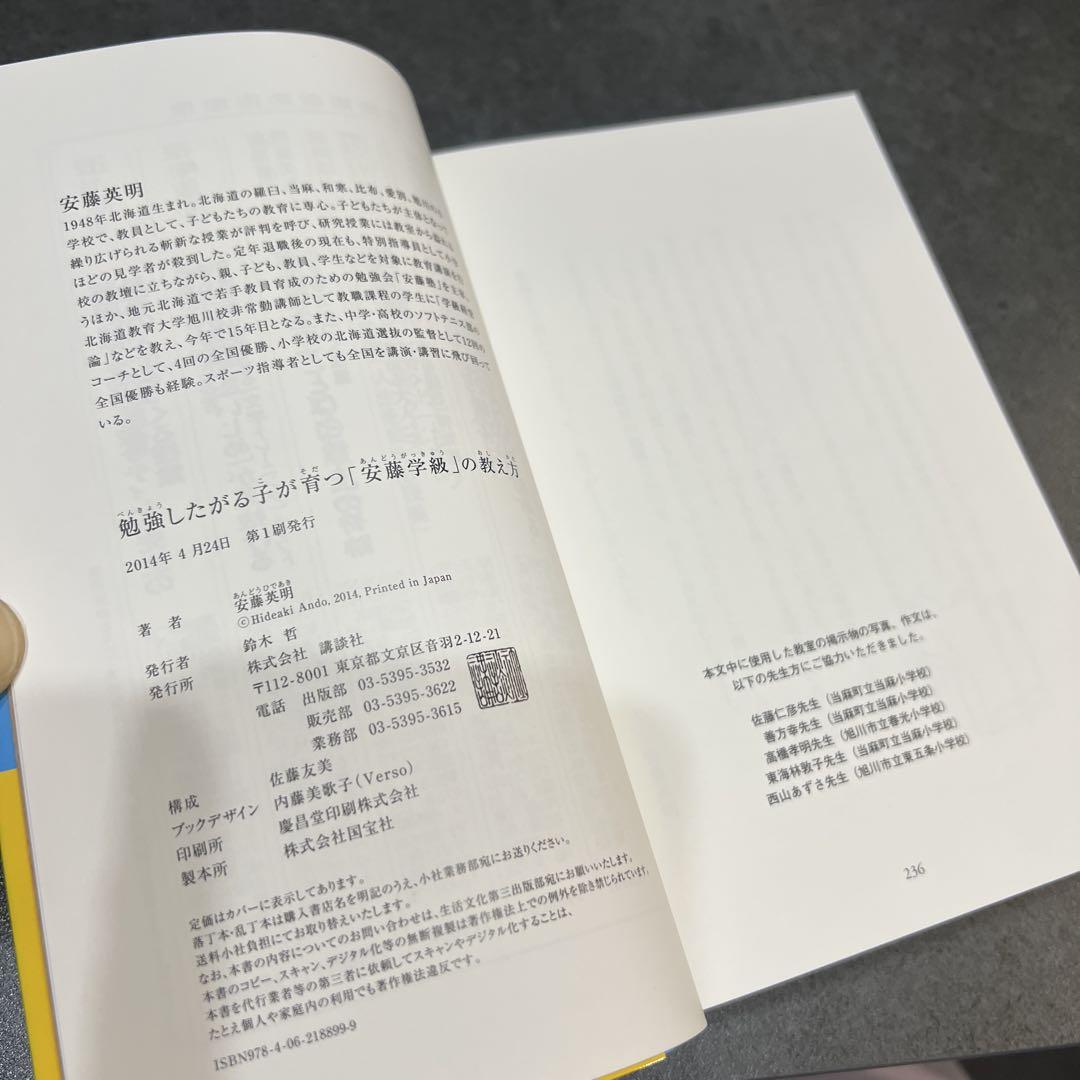 安藤英明
1948年北海道生まれ。北海道の羅臼、当麻、和寒、比布、愛別、旭川の
学校で、教員として、子どもたちの教育に専心。子どもたちが主体となって
繰り広げられる斬新な授業が評判を呼び、研究授業には教室から溢れる
ほどの見学者が殺到した。定年退職後の現在も、特別指導員として小学
校の教壇に立ちながら、親、子ども、教員、学生などを対象に教育講演を行
うほか、地元北海道で若手教員育成のための勉強会「安藤塾」を主宰。
北海道教育大学旭川校非常勤講師として教職課程の学生に「学級経営
論」などを教え、今年で15年目となる。また、中学・高校のソフトテニス部の
コーチとして、4回の全国優勝、小学校の北海道選抜の監督として12回の
全国優勝も経験。スポーツ指導者としても全国を講演・講習に飛び回って
いる。
べんきょう こ そだ あんどうがっきゅう おし かた
勉強したがる子が育つ「安藤学級」の教え方
2014年 4 月24日 第1刷発行
あんどうひであき
著 者 安藤英明
©Hideaki Ando, 2014, Printed in Japan
発行者 鈴木 哲
発行所 株式会社 講談社
〒112-8001 東京都文京区音羽2-12-21
電話 出版部 03-5395-3532
販売部 03-5395-3622
業務部 03-5395-3615
構成 佐藤友美
ブックデザイン 内藤美歌子(Verso)
印刷所 慶昌堂印刷株式会社
製本所 株式会社国宝社
定価はカバーに表示してあります。
落丁本・乱丁本は購入書店名を明記のうえ、小社業務部宛にお送りください。
送料小社負担にてお取り替えいたします。
なお、本書の内容についてのお問い合わせは、生活文化第三出版部宛にお願いいたします。
本書のコピー、スキャン、デジタル化等の無断複製は著作権法上での例外を除き禁じられています。
本書を代行業者等の第三者に依頼してスキャンやデジタル化することは、
たとえ個人や家庭内の利用でも著作権法違反です。
ISBN978-4-06-218899-9
本文中に使用した教室の掲示物の写真、作文は、
以下の先生方にご協力いただきました。
佐藤仁彦先生(当麻町立当麻小学校)
善方幸先生(当麻町立当麻小学校)
高橋孝明先生(旭川市立春光小学校)
東海林敦子先生(当麻町立当麻小学校)
西山あずさ先生(旭川市立東五条小学校)
236